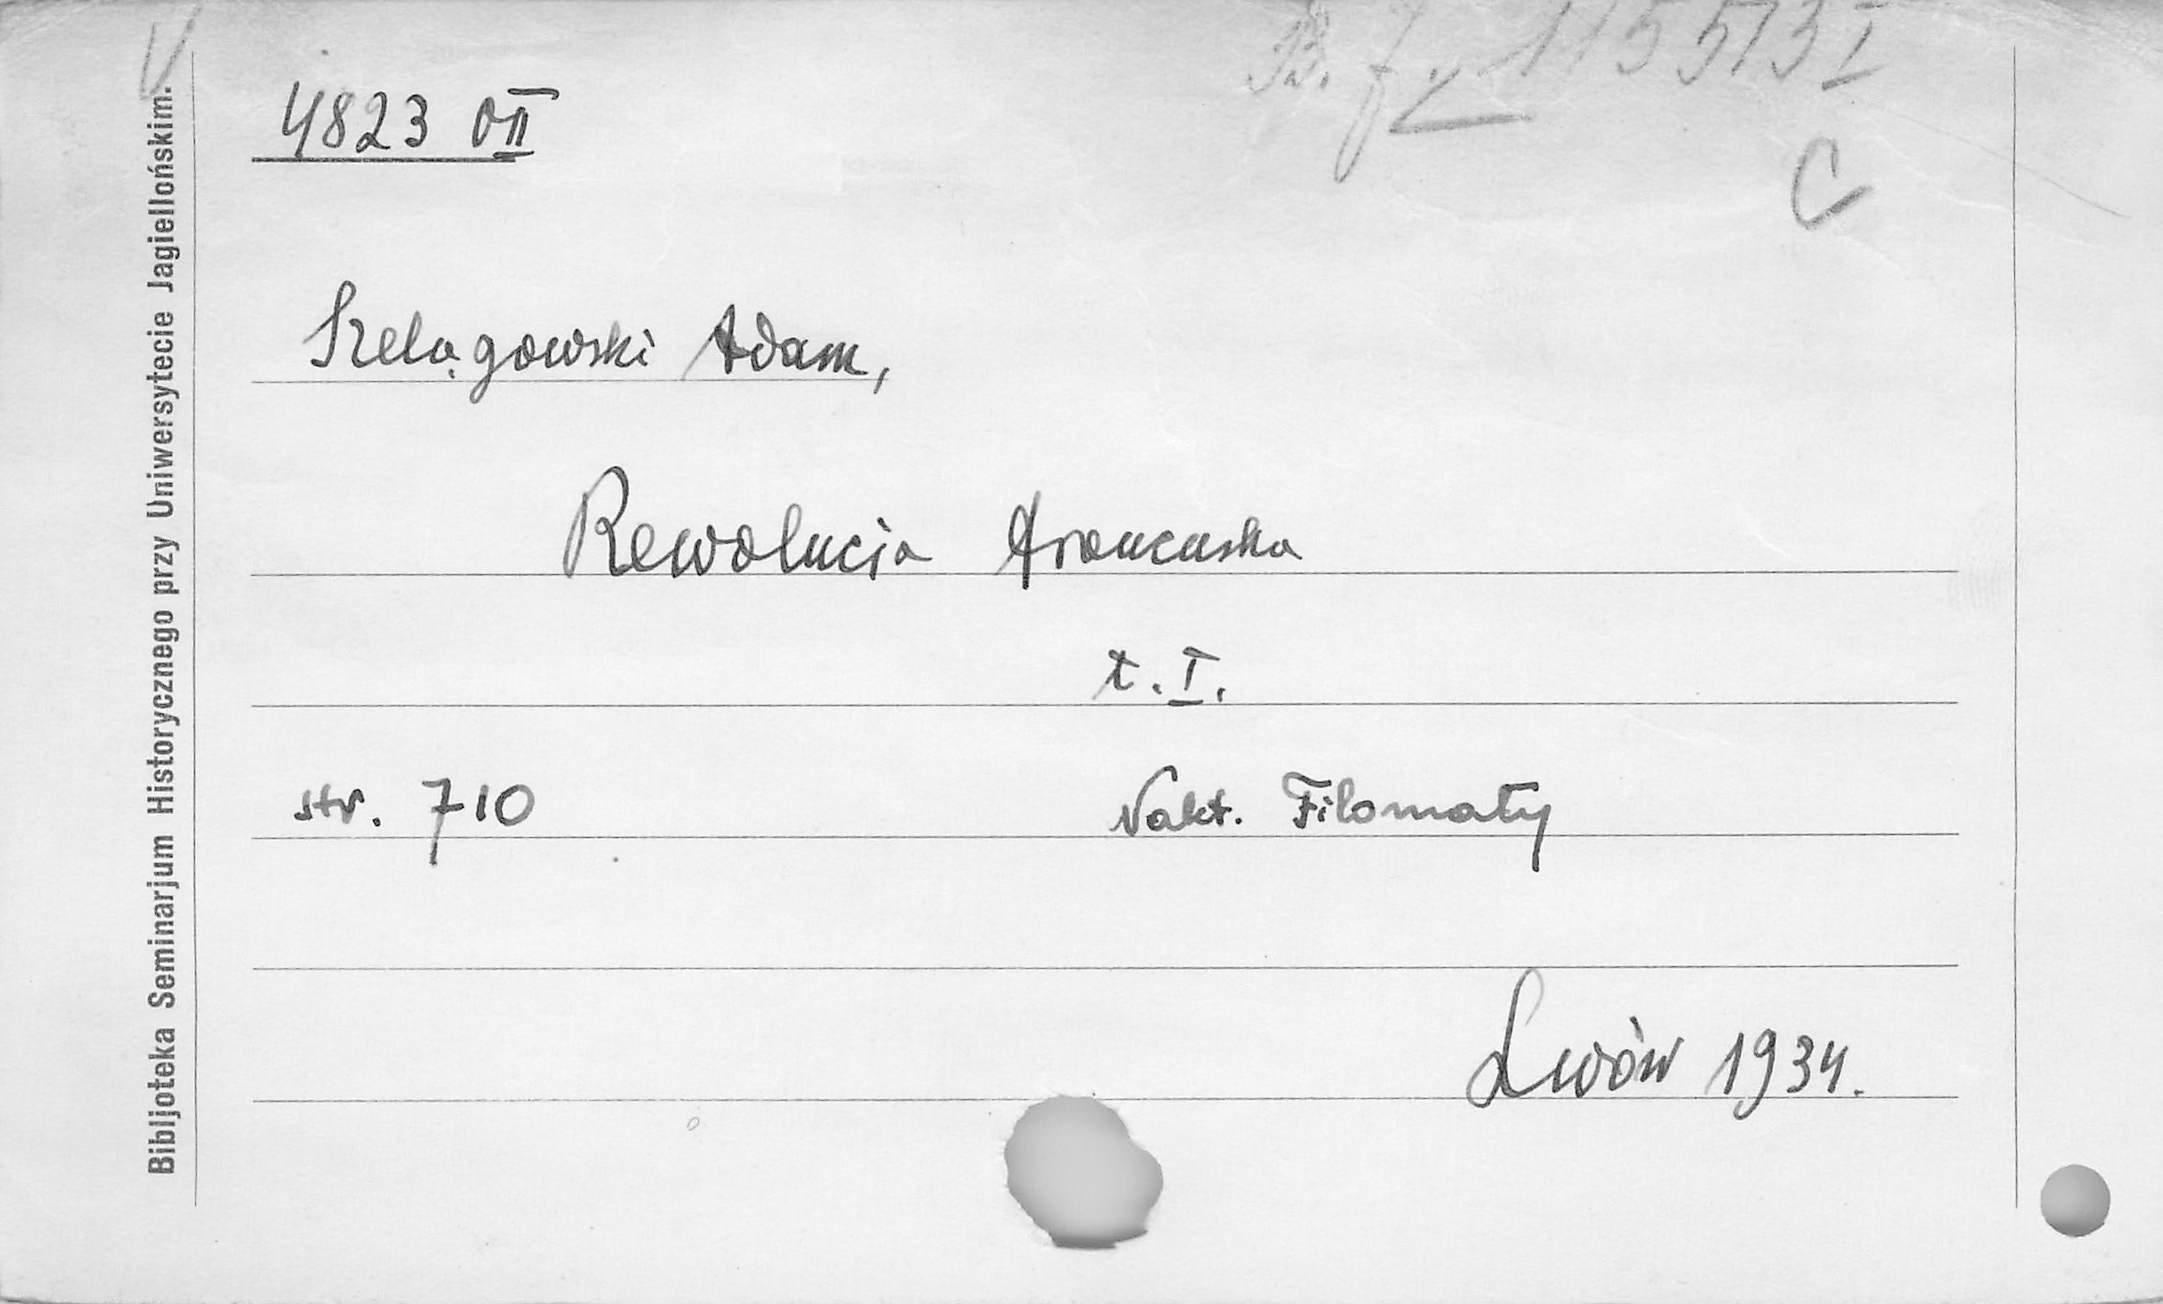 V
B. J. 115513 I
4823 OII
C
Szelągowski Adam,
Rewolucja francuska
t. I.
str. 710
Nakt. Filomaty
Lwów 1934.
Bibljoteka Seminarjum Historycznego przy Uniwersytecie Jagiellońskim.